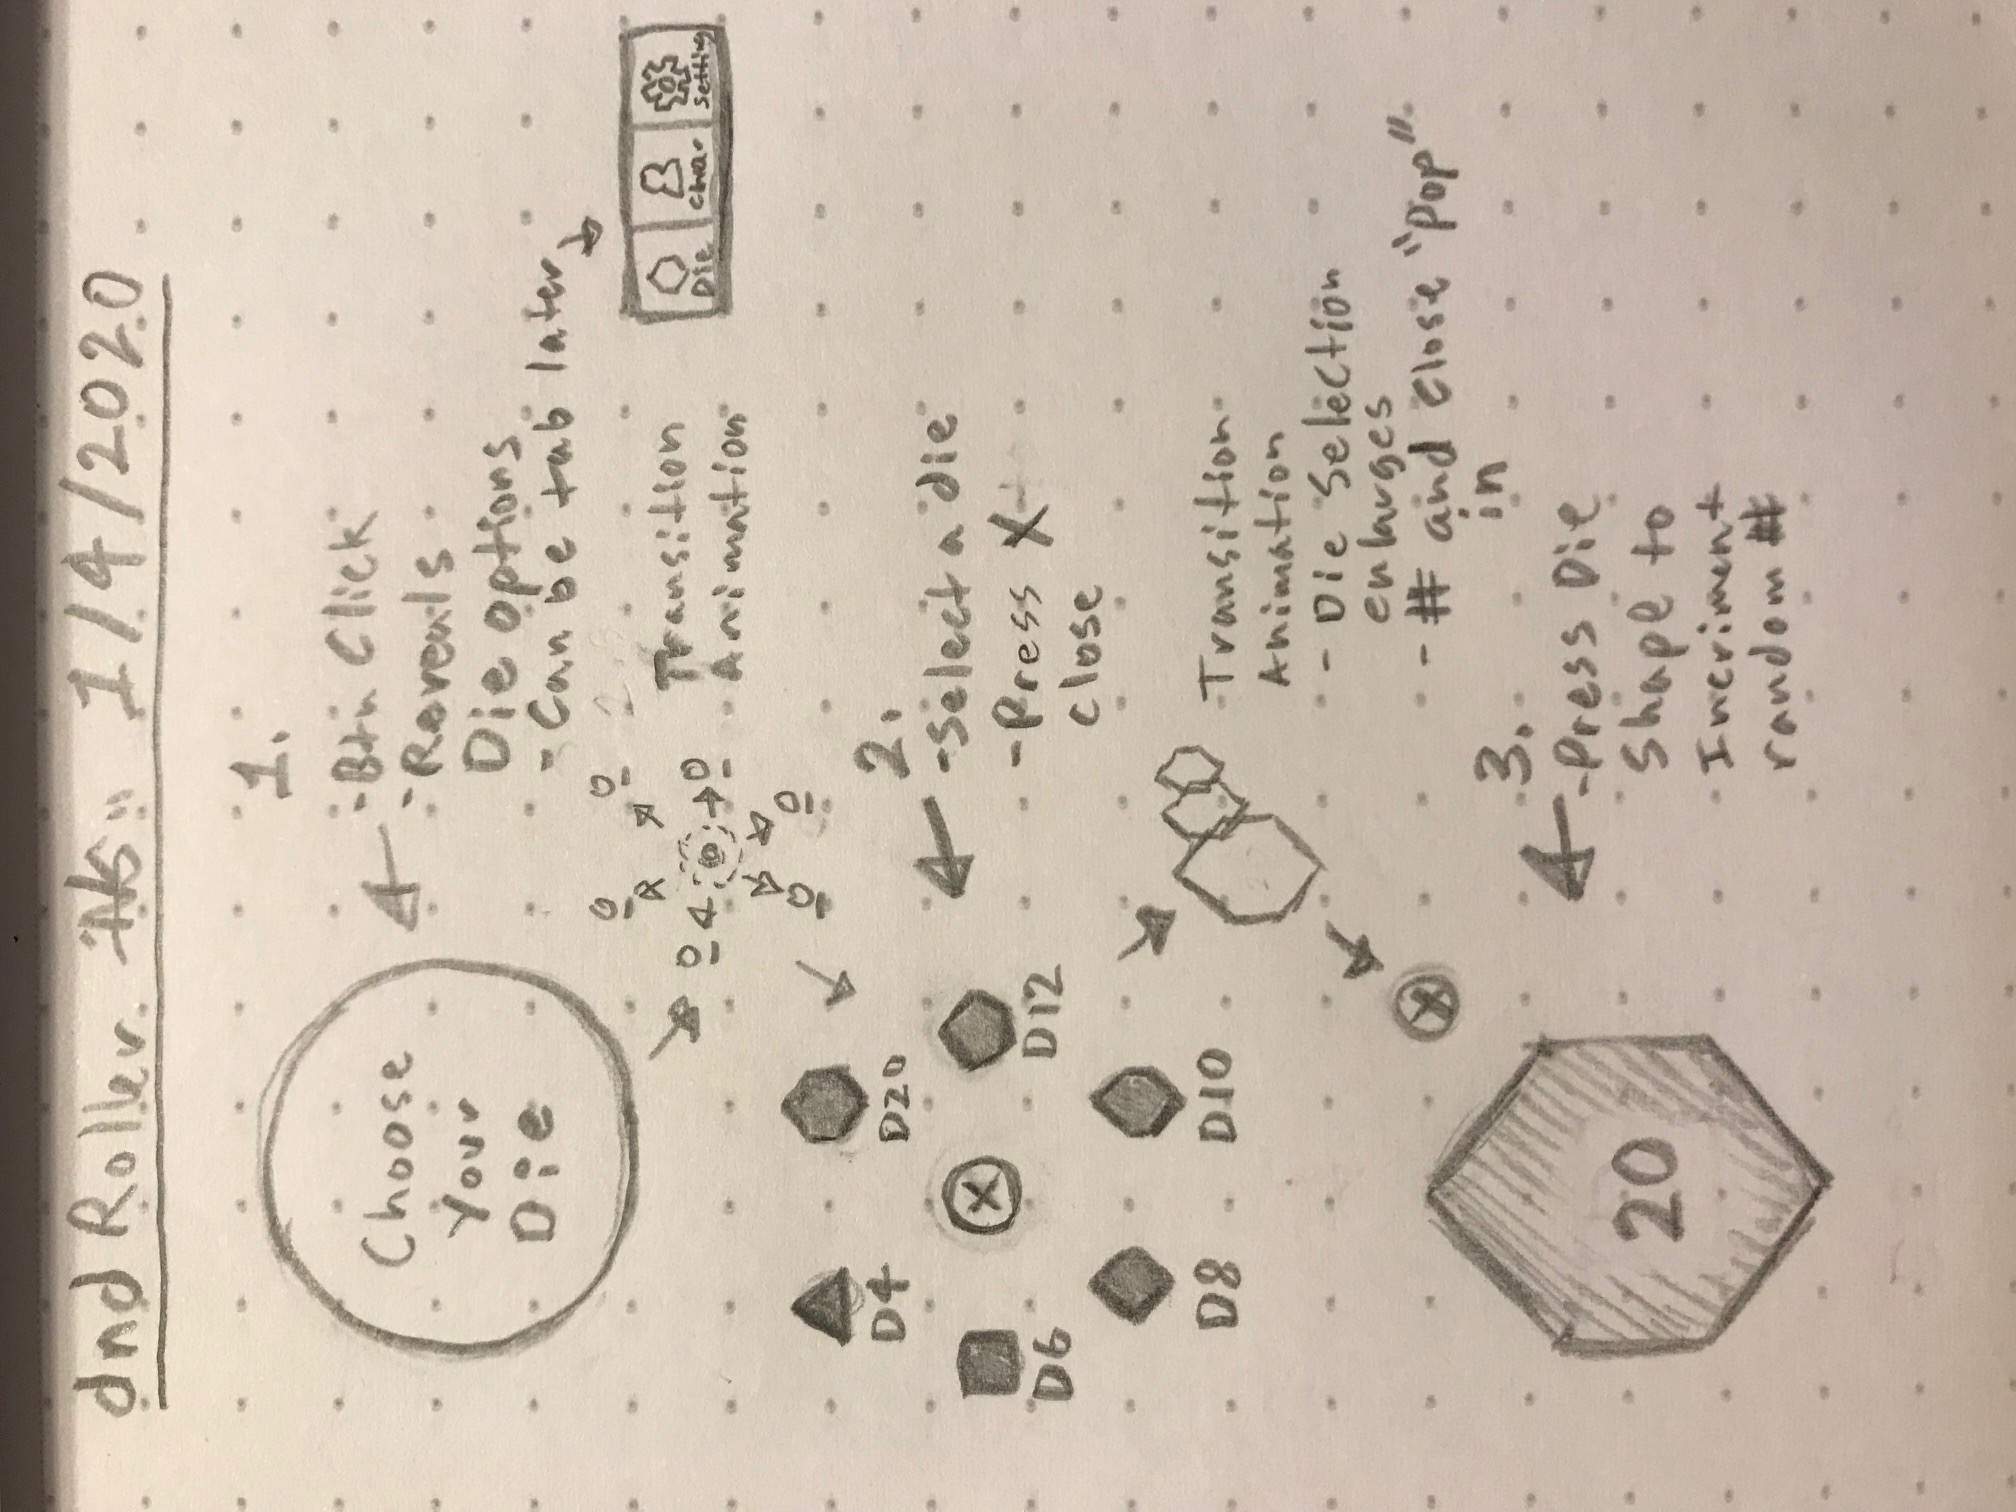 dnd Roller 1/4/2020
Choose
Your
Die
1.
- Btn Click
- Reveals
Die options
- Can be tab later
Die
Char
Setting
Transition
Animation
D4
D20
D6
X
D12
D8
D10
2.
- Select a die
- Press X to
close
Transition
Animation
- Die Selection
enlarges
- # and close "Pop"
in
X
20
3.
- Press Die
Shape to
Incriment
random #